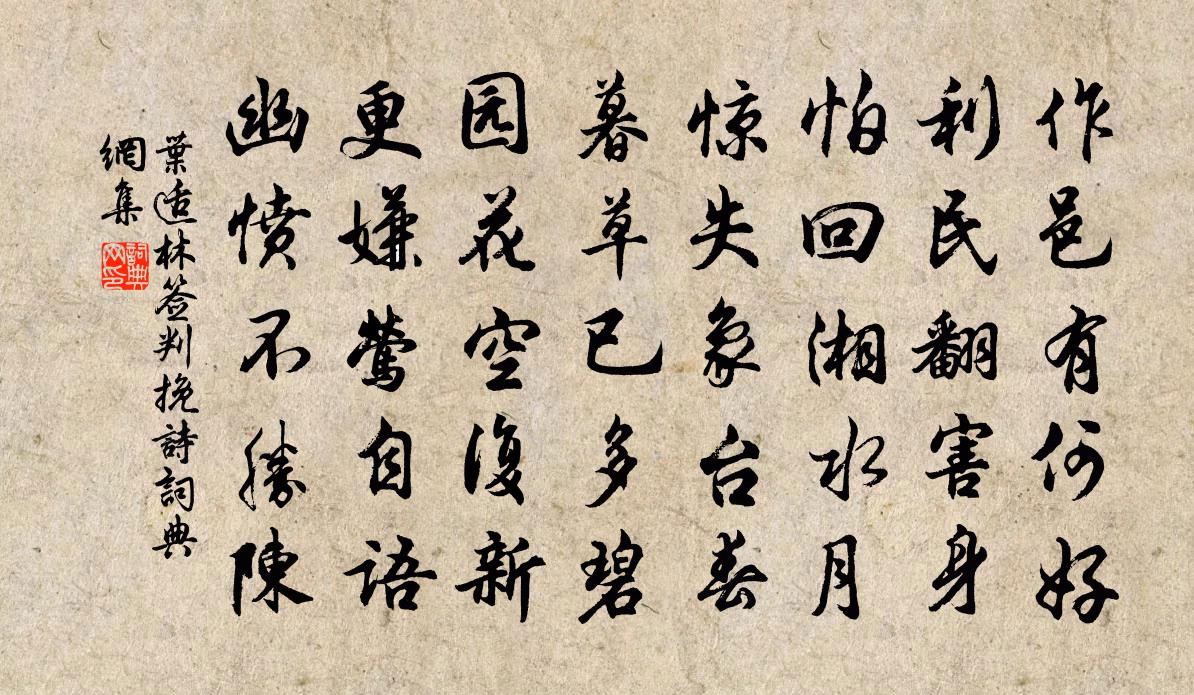 作邑有何好
利民翻害身
怕回湘水月
惊失象台春
暮草已多碧
园花空復新
更嫌鶯自语
幽愤不勝陳
葉适林簽判挽詩詞典
網集
詞典网印